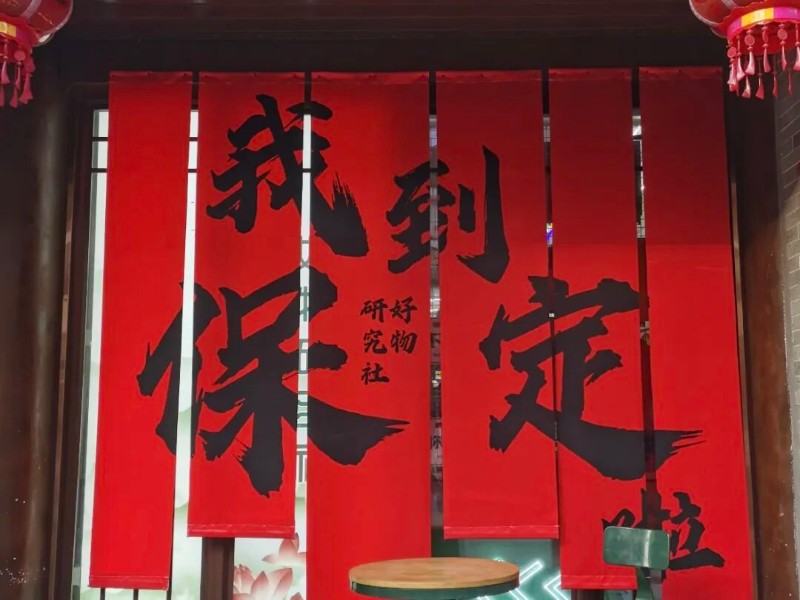 我到
保定
啦
好物
研究社